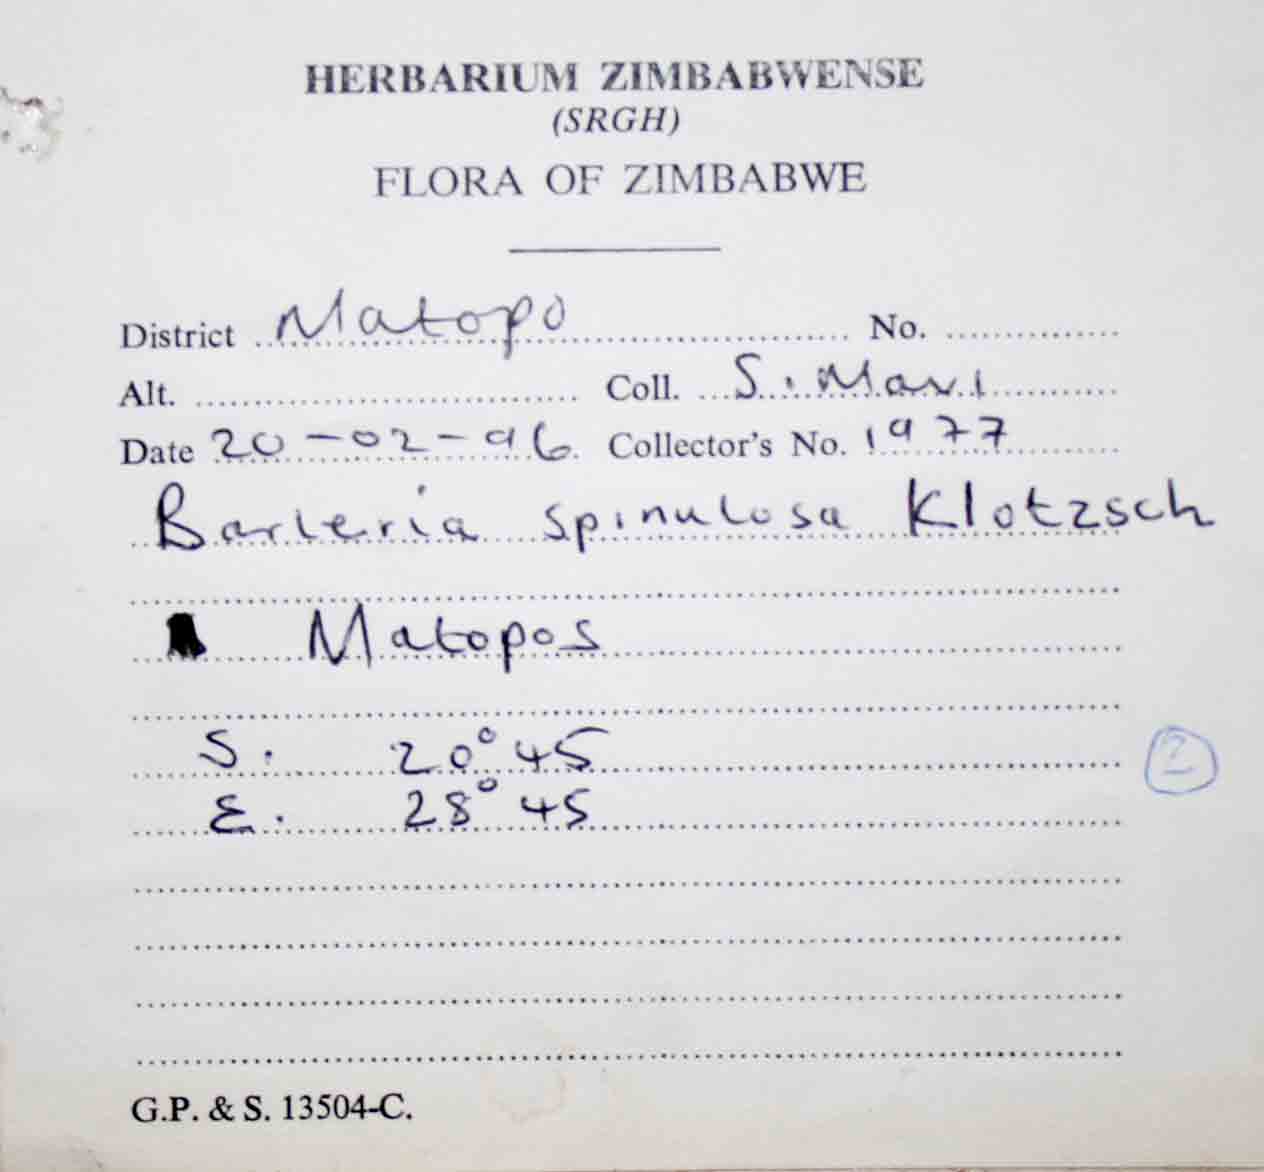 HERBARIUM ZIMBABWENSE
(SRGH)
FLORA OF ZIMBABWE
District Matopo No.
Alt. Coll. S. Mavi
Date 20-02-96 Collector's No. 1977
Barleria spinulosa Klotzsch
Matopos
S. 20° 45
2
E. 28° 45
G.P. & S. 13504-C.